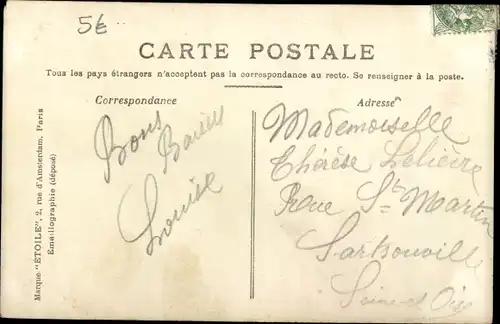 5€
CARTE POSTALE
Tous les pays étrangers n'acceptent pas la correspondance au recto. Se renseigner à la poste.
Correspondance
Adresse
Bons
Baisers
Louise
Mademoiselle
Thérèse Lelièvre
Rue St Martin
Sartrouville
Seine et Oise
Marque "ÉTOILE", 2, rue d'Amsterdam, Paris
Émaillographie (déposé)